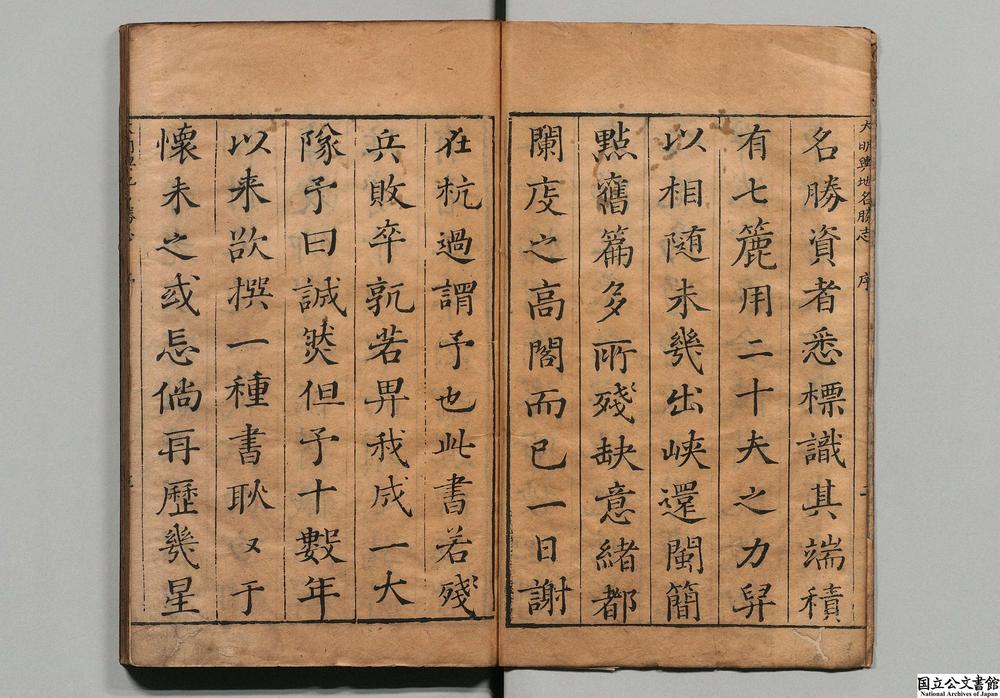 大明輿地名勝志 序 二
名勝資者悉標識其端積
有七簏用二十夫之力舁
以相随未幾出峽還閩簡
點舊篇多所殘缺意緒都
闌庋之高閣而已一日謝
在杭過謂予也此書若殘
兵敗卒孰若畀我成一大
隊予曰誠然但予十數年
以来欲撰一種書耿〻于
懷未之或忘倘再歷幾星
国立公文書館
National Archives of Japan